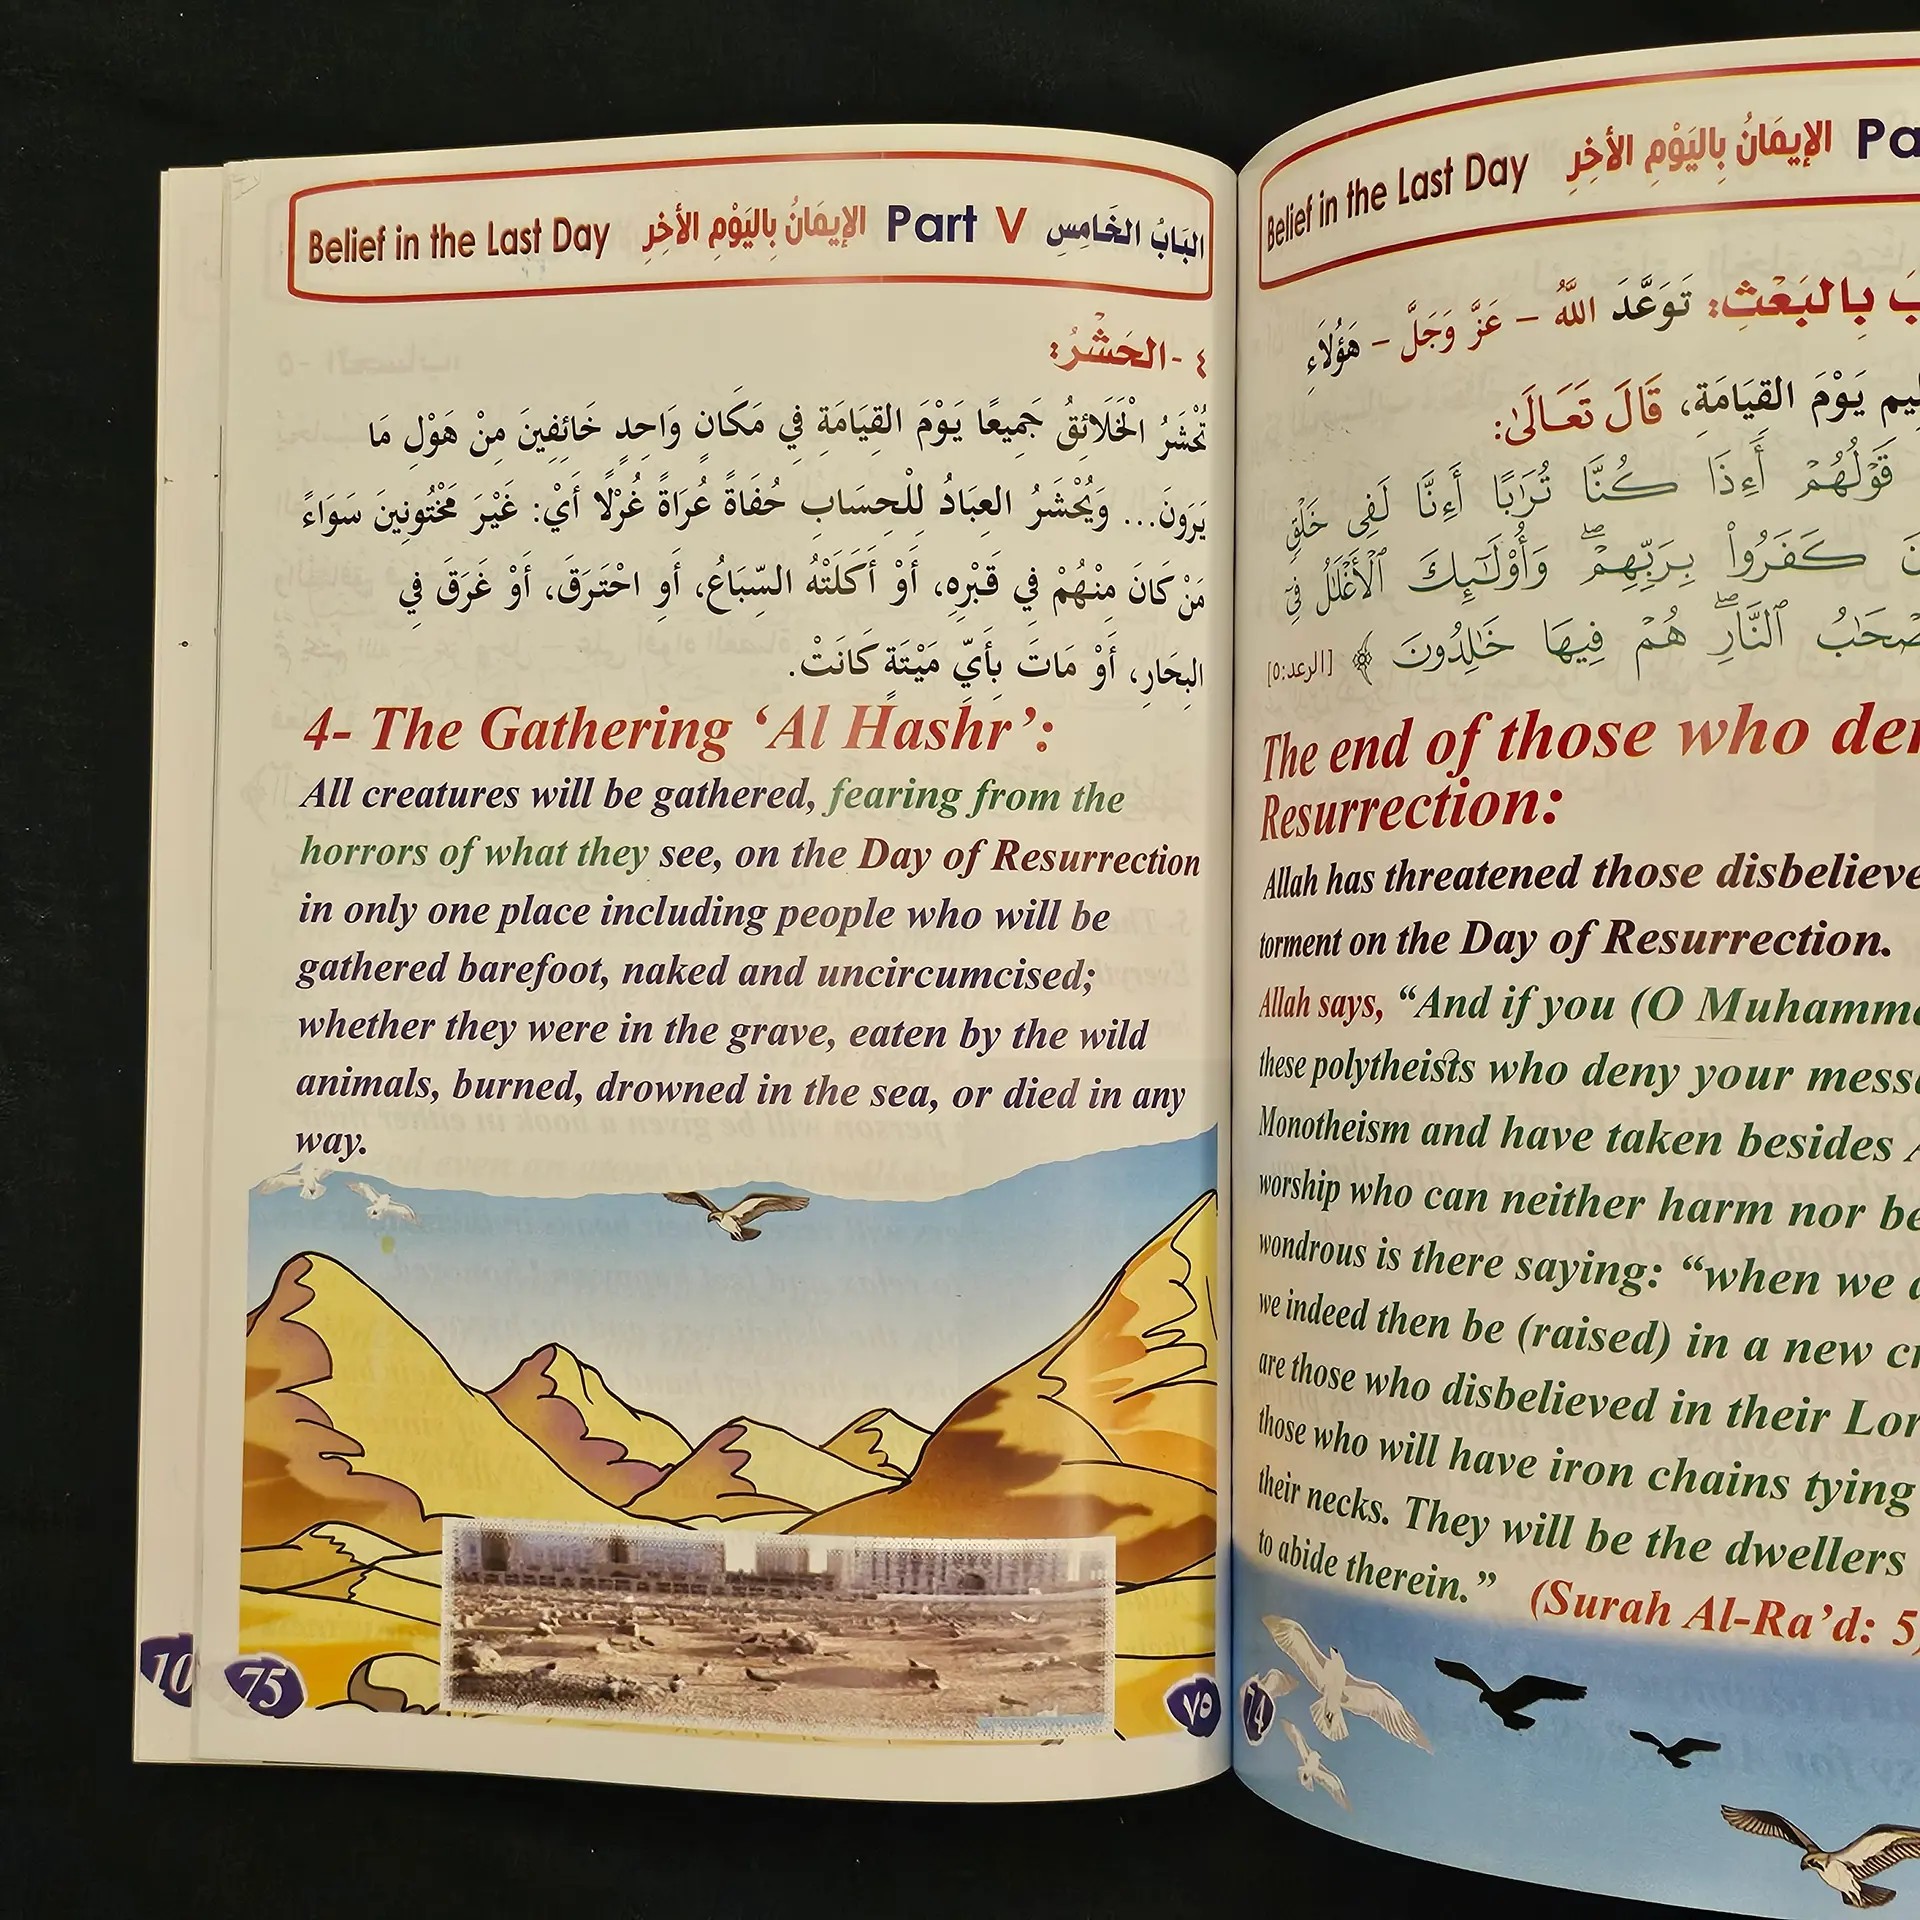 Belief in the Last Day الإيمَانُ بِاليَوْمِ الأخِرِ Part V البَابُ الخَامِس
٤ -الحَشْرُ:
تُحْشَرُ الْخَلَائِقُ جَمِيعًا يَوْمَ القِيَامَةِ فِي مَكَانٍ وَاحِدٍ خَائِفِينَ مِنْ هَوْلِ مَا
يَرَونَ... وَيُحْشَرُ العِبَادُ لِلْحِسَابِ حُفَاةً عُرَاةً غُرْلًا أَيْ: غَيْرَ مَخْتُونِينَ سَوَاءً
مَنْ كَانَ مِنْهُمْ فِي قَبْرِهِ، أَوْ أَكَلَتْهُ السِّبَاعُ، أَو احْتَرَقَ، أَوْ غَرَقَ فِي
البِحَارِ، أَوْ مَاتَ بِأَيِّ مَيْتَةٍ كَانَتْ.
4- The Gathering ‘Al Hashr’:
All creatures will be gathered, fearing from the
horrors of what they see, on the Day of Resurrection
in only one place including people who will be
gathered barefoot, naked and uncircumcised;
whether they were in the grave, eaten by the wild
animals, burned, drowned in the sea, or died in any
way.
10
75
٧٥
Belief in the Last Day الإيمَانُ بِاليَوْمِ الأخِرِ
بِالبَعْثِ: تَوَعَّدَ اللَّهُ – عَزَّ وَجَلَّ – هَؤُلَاءِ
يَوْمَ القِيَامَةِ، قَالَ تَعَالَىٰ:
قَوْلُهُمْ أَءِذَا كُنَّا تُرَٰبًا أَءِنَّا لَفِى خَلْقٍ
كَفَرُوا۟ بِرَبِّهِمْ ۖ وَأُو۟لَـٰٓئِكَ ٱلْأَغْلَـٰلُ فِىٓ
ٱلنَّارِ ۖ هُمْ فِيهَا خَـٰلِدُونَ ﴾ [الرعد:٥]
The end of those who
Resurrection:
Allah has threatened those
torment on the Day of Resurrection.
Allah says, “And if you (O
these polytheists who deny your
Monotheism and have taken besides
worship who can neither harm nor
wondrous is there saying: “when we
we indeed then be (raised) in a new
are those who disbelieved in their
those who will have iron chains tying
their necks. They will be the dwellers
to abide therein.” (Surah Al-Ra’d: 5)
74